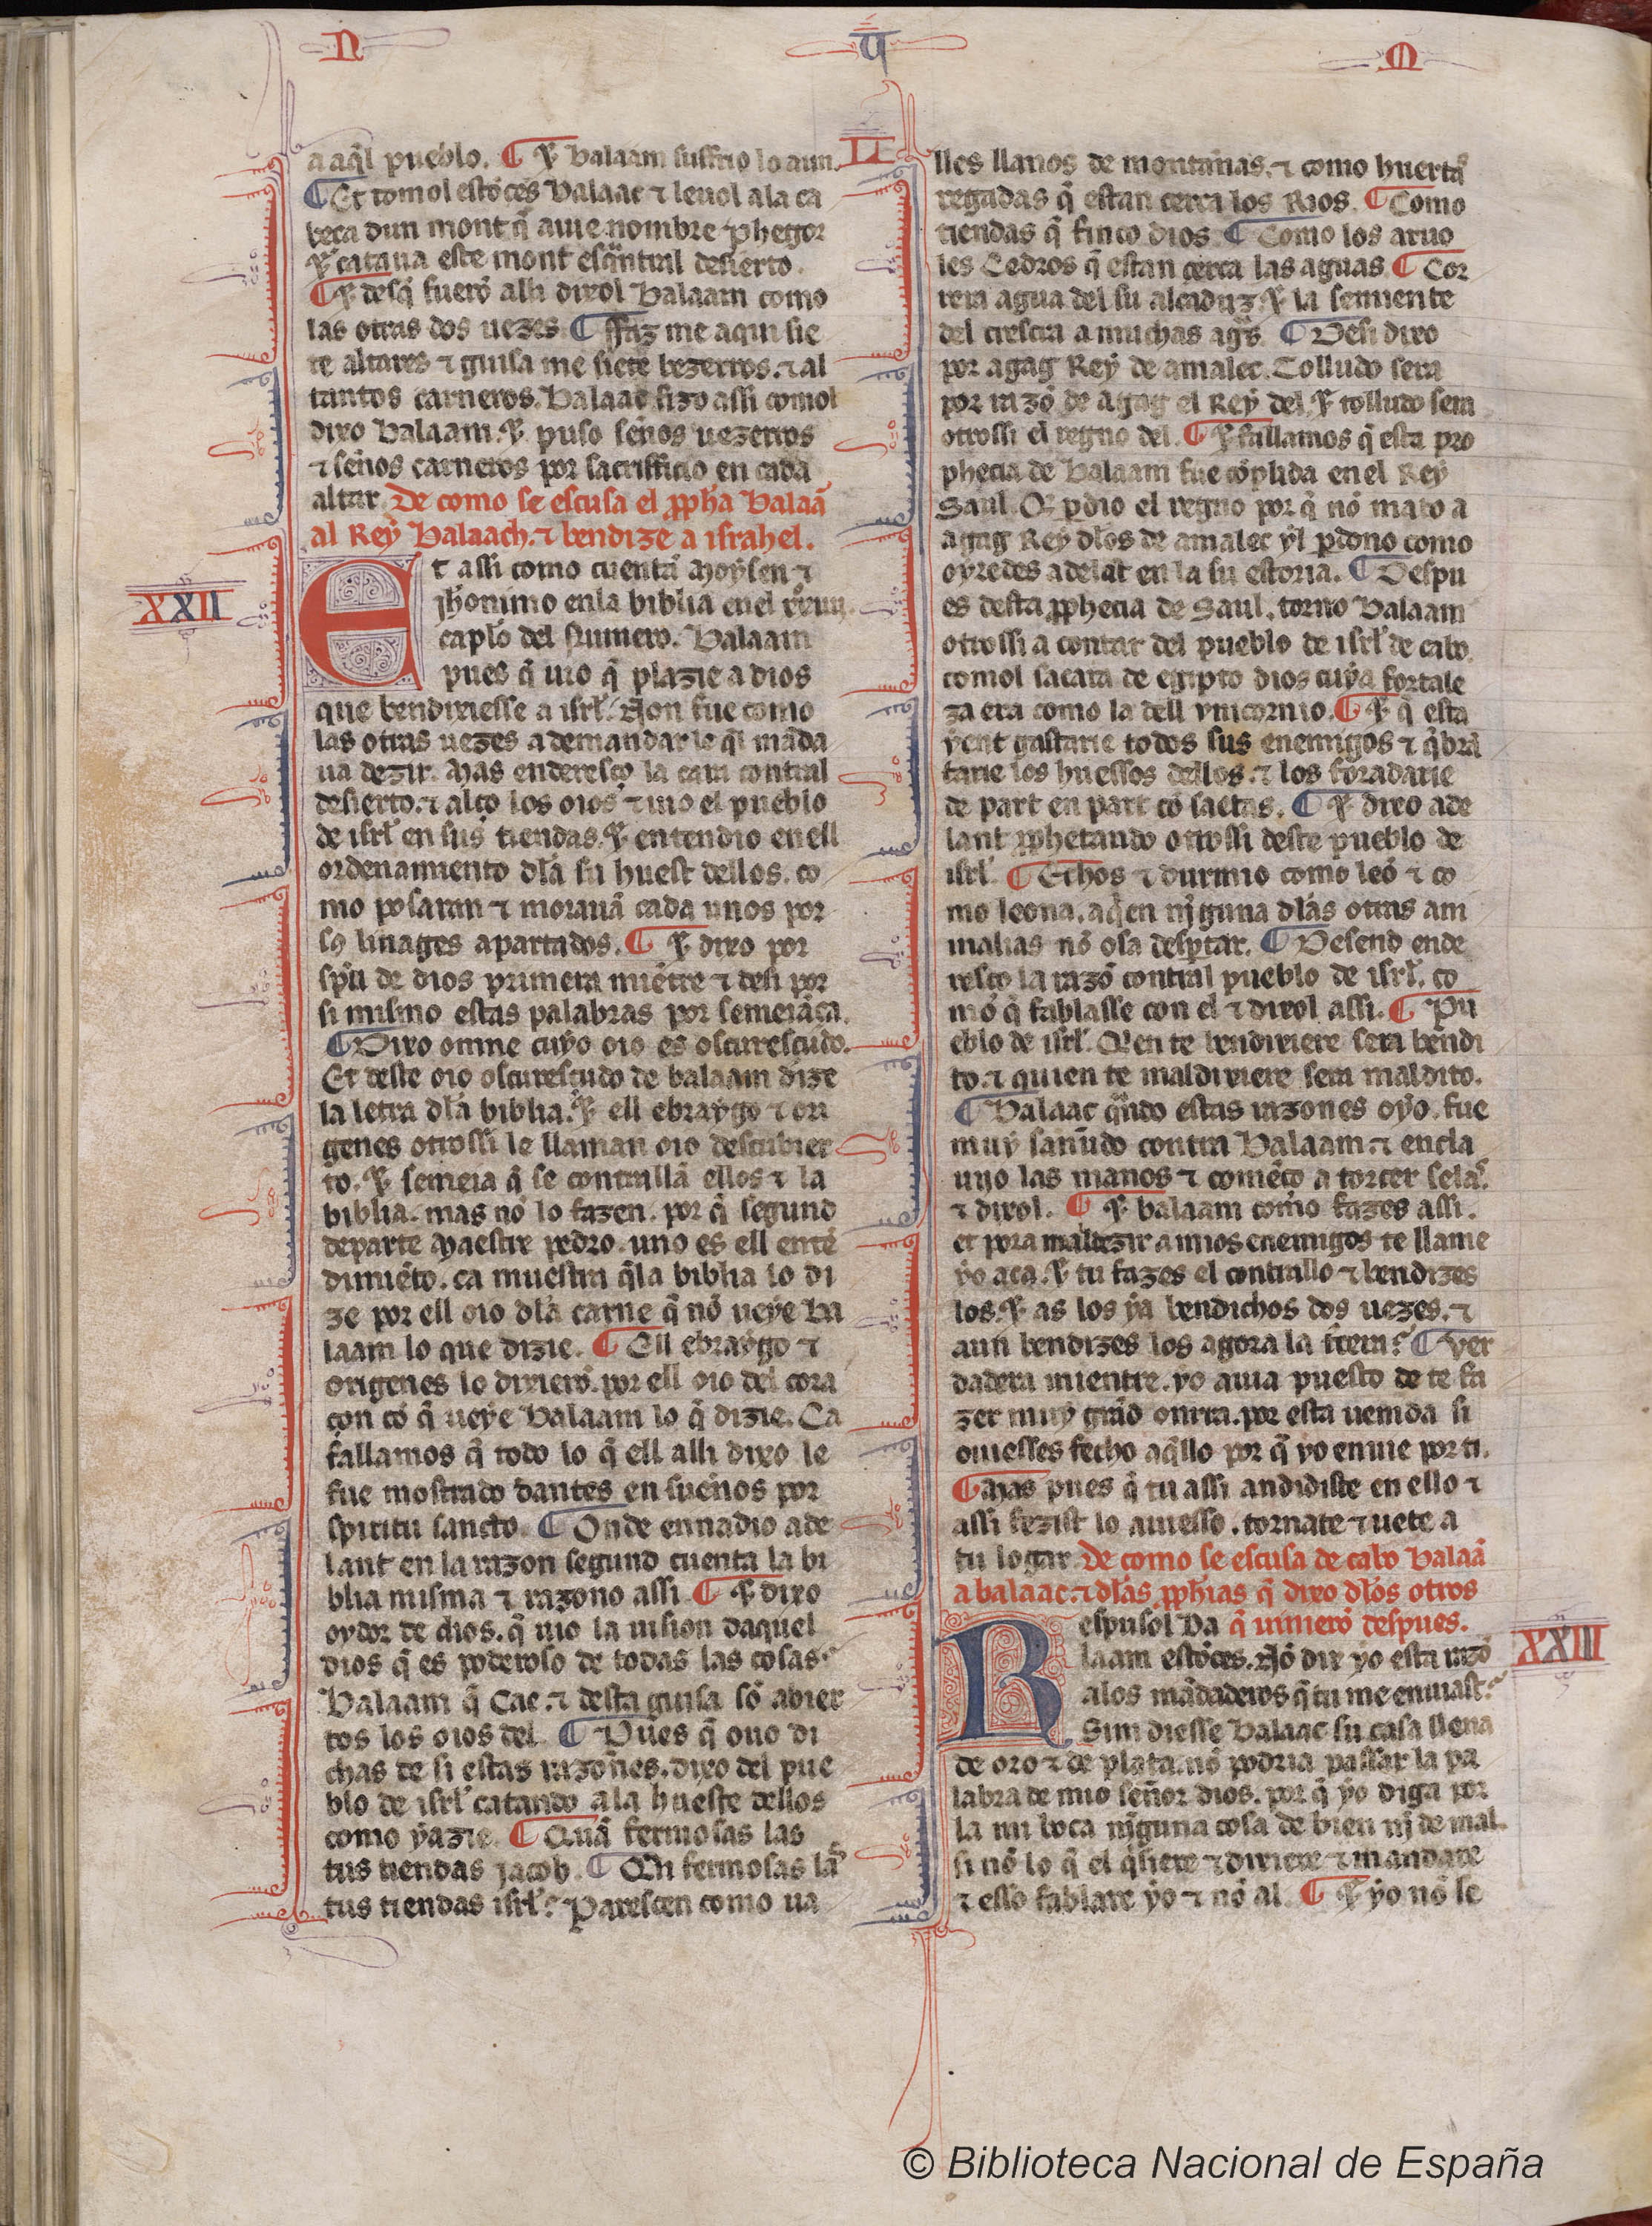 N U M
a aq̃l pueblo. ¶ ⁊ balaam suffrio lo aun.
¶ Et tomol estõces Balaac ⁊ leuol ala ca
beça dun mont q̃ auie nombre phegor
⁊ cataua este mont esq̃ntral desierto.
¶ ⁊ desq̃ fuerõ alli dixol Balaam como
las otras dos uezes. ¶ ffaz me aqui sie
te altares ⁊ guisa me siete bezerros. ⁊ al
tantos carneros. Balaac fizo assi comol
dixo Balaam. ⁊ puso sẽnos uezerros
⁊ sẽnos carneros por sacrifficio en cada
altar. De como se escusa el ꝓpha Balaã
al Rey Balaach. ⁊ bendize a israhel.
XXII
Et assi como cuentã Moysen ⁊
jh̃onimo enla biblia enel xxiiij.
capło del Numero. Balaam
pues q̃ uio q̃ plazie a dios
que bendixiesse a isrł. Non fue como
las otras uezes a demandar le q̃l mãda
ua dezir. Mas enderesço la cara contral
desierto. ⁊ alço los oios ⁊ uio el pueblo
de isrł en sus tiendas. ⁊ entendio en ell
ordenamiento dła su huest dellos. co
mo posaran ⁊ morauã cada unos por
so linages apartados. ¶ ⁊ dixo por
sp̃u de dios primera miẽtre ⁊ desi por
si mismo estas palabras por semeiãça.
¶ Dixo omne cuyo oio es oscurescudo.
Et deste oio oscurescudo de balaam dize
la letra dła biblia. ⁊ ell ebraygo ⁊ ori
genes otrossi le llaman oio descubier
to. ⁊ semeia q̃ se contrallã ellos ⁊ la
biblia. mas nõ lo fazen. por q̃ segund
departe Maestre pedro. uno es ell entẽ
dimiẽto. ca muestra q̃la biblia lo di
ze por ell oio dła carne q̃ nõ ueye Ba
laam lo que dizie. ¶ Ell ebraygo ⁊
origenes lo dixierõ. por ell oio del cora
çon cõ q̃ ueye Balaam lo q̃ dizie. Ca
fallamos q̃ todo lo q̃ ell alli dixo le
fue mostrado dantes en suẽnos por
spiritu sancto. ¶ Onde ennadio ade
lant en la razon segund cuenta la bi
blia misma ⁊ razono assi. ¶ ⁊ dixo
oydor de dios. q̃ uio la uision daquel
dios q̃ es poderoso de todas las cosas.
Balaam q̃ Cae. ⁊ desta guisa sõ abier
tos los oios del. ¶ Pues q̃ ouo di
chas de si estas razones. dixo del pue
blo de isrł catando ala hueste dellos
como yazie. ¶ Quã fermosas las
tus tiendas jacob. ¶ On fermosas las
tus tiendas isrł. Parescen como ua
II
lles llanos de montãnas. ⁊ como huertas
regadas q̃ estan cerca los Rios. ¶ Como
tiendas q̃ finco dios. ¶ Como los aruo
les Cedros q̃ estan cerca las aguas. ¶ Cor
rera agua del su alcaduz. ⁊ la semiente
del crescra a muchas ag̃s. ¶ Desi dixo
por agag Rey de amalec. Tolludo sera
por razõ de Agag el Rey del. ⁊ tolludo sera
otrossi el regno del. ¶ ⁊ fallamos q̃ esta pro
phecia de Balaam fue cõplida en el Rey
Saul. Q̃ p̱dio el regno por q̃ nõ mato a
agag Rey dłos de amalec yl p̱dono como
oyredes adelãt en la su estoria. ¶ Despu
es desta ꝓphecia de Saul. torno Balaam
otrossi a contar del pueblo de isrł de cabo.
comol sacara de egipto dios cuya fortale
za era como la dell vnicornio. ¶ ⁊ q̃ esta
yent gastarie todos sus enemigos ⁊ q̃brã
tarie los huessos dellos. ⁊ los foradarie
de part en part cõ saetas. ¶ ⁊ dixo ade
lant ꝓphetando otrossi deste pueblo de
isrł. ¶ Echos ⁊ durmio como leõ ⁊ co
mo leona. aq̃en nĩguna dłas otras ani
malias nõ osa desp̱tar. ¶ Desend ende
resço la razõ contral pueblo de isrł. co
mõ q̃ fablasse con el ⁊ dixol assi. ¶ Pu
eblo de isrł. Q̃en te bendixiere sera bendi
to. ⁊ quien te maldixiere sera maldito.
¶ Balaac q̃ndo estas razones oyo. fue
muy sannudo contra Balaam. ⁊ encla
uijo las manos ⁊ comẽço a torcer selas.
⁊ dixol. ¶ ⁊ balaam como fazes assi.
et pora maldezir a mios enemigos te llame
yo aca. ⁊ tu fazes el contrallo ⁊ bendizes
los. ⁊ as los ya bendichos dos uezes. ⁊
aun bendizes los agora la tc̃era? ¶ Ver
dadera mientre. yo auia puesto de te fa
zer muy grãd onrra. por esta uenida si
ouiesses fecho aq̃llo por q̃ yo enuie por ti.
¶ Mas pues q̃ tu assi andidiste en ello ⁊
assi fezist lo auiesso. tornate ⁊ uete a
tu logar. De como se escusa de cabo Balaã
a balaac. ⁊ dłas ꝓphias q̃ dixo dłos otros
q̃ uinierõ despues.
XXIII
Respusol Ba
laam estõces. Nõ dix yo esta razõ
alos mãdaderos q̃ tu me enuiast.
Sim diesse Balaac su casa llena
de oro ⁊ de plata. nõ podria passar la pa
labra de mio señor dios. por q̃ yo diga por
la mi boca nĩguna cosa de bien nĩ de mal.
si nõ lo q̃ el q̃siere ⁊ dixiere ⁊ mandare
⁊ esso fablare yo ⁊ nõ al. ¶ ⁊ yo nõ se
© Biblioteca Nacional de España